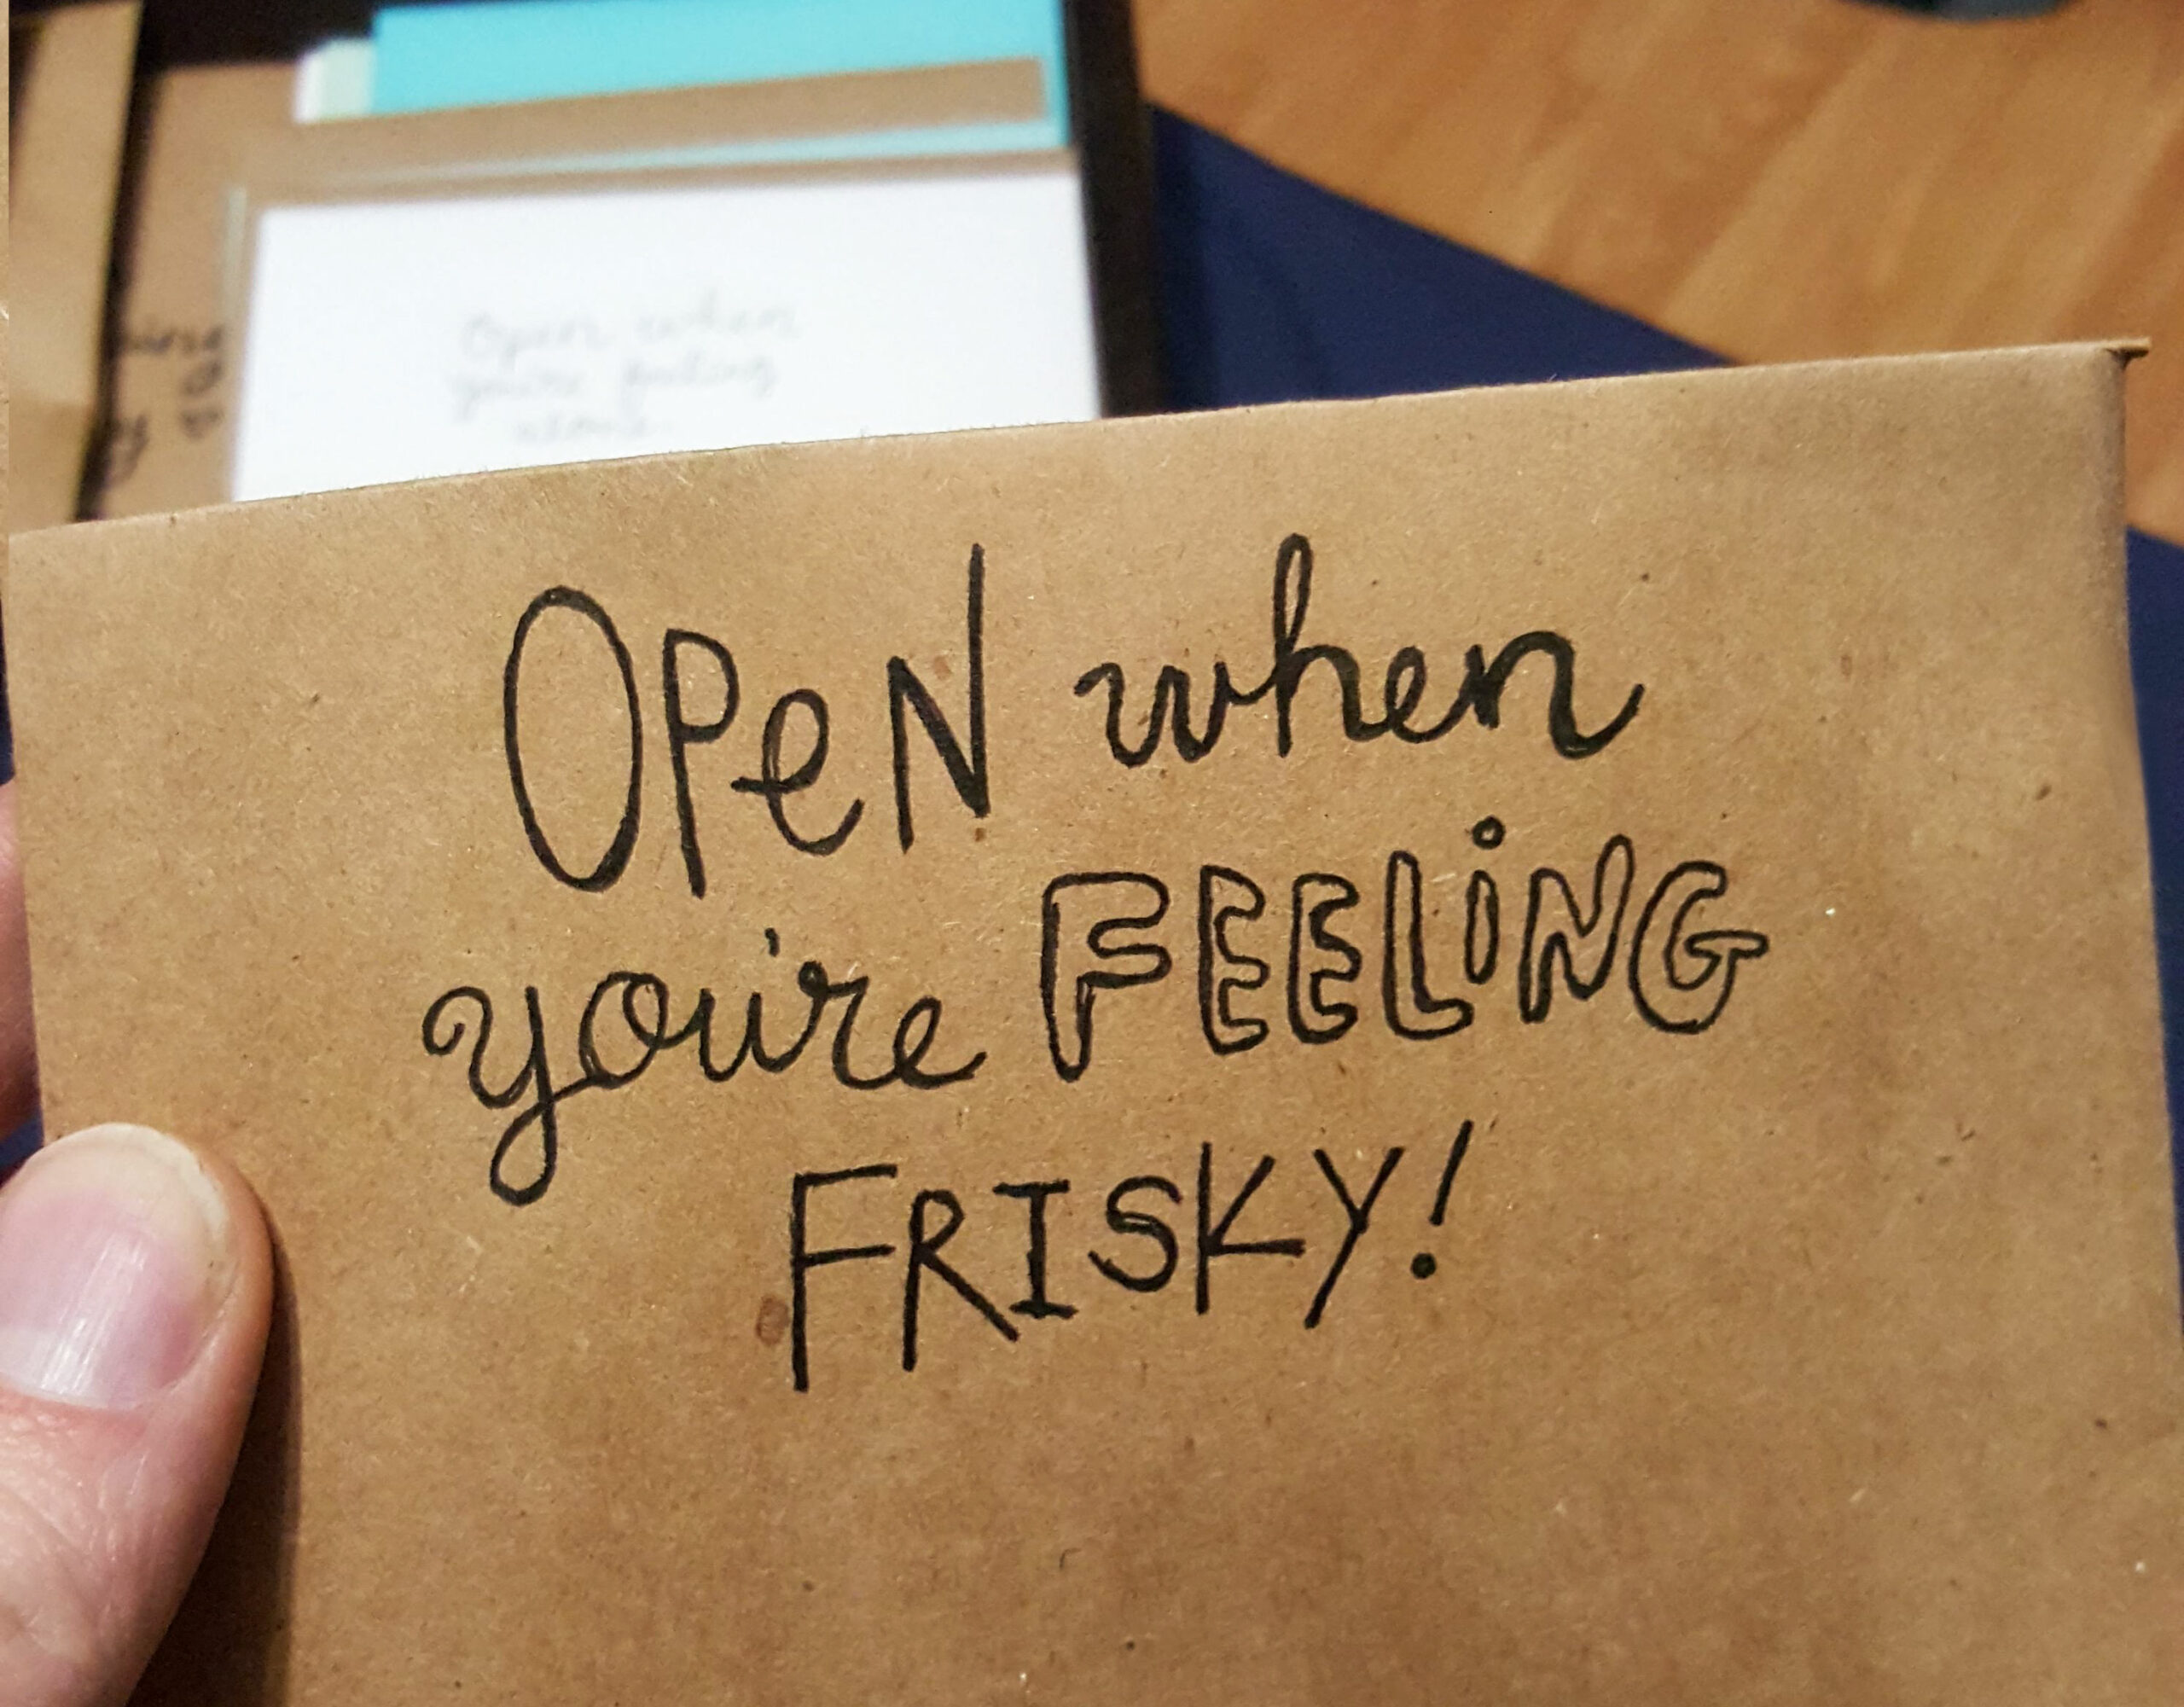 Open when
you're feeling
OPeN when
you're FEELiNG
FRISKY!